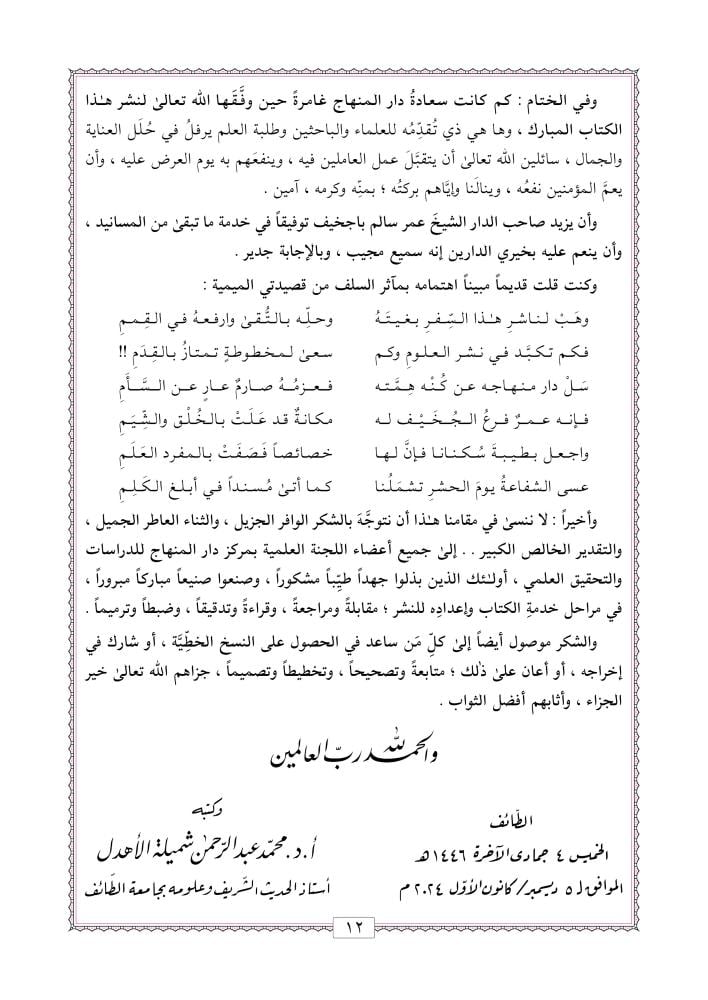 وفي الختام : كم كانت سعادةُ دار المنهاج غامرةً حين وفَّقَها الله تعالىٰ لنشر هـٰذا
الكتاب المبارك ، وها هي ذي تُقدِّمُه للعلماء والباحثين وطلبة العلم يرفلُ في حُلَل العناية
والجمال ، سائلين الله تعالىٰ أن يتقبَّلَ عمل العاملين فيه ، وينفعَهم به يوم العرض عليه ، وأن
يعمَّ المؤمنين نفعُه ، وينالَنا وإيَّاهم بركتُه ؛ بمنِّه وكرمه ، آمين .
وأن يزيد صاحب الدار الشيخَ عمر سالم باجخيف توفيقاً في خدمة ما تبقىٰ من المسانيد ،
وأن ينعم عليه بخيري الدارين إنه سميع مجيب ، وبالإجابة جدير .
وكنت قلت قديماً مبيناً اهتمامه بمآثر السلف من قصيدتي الميمية :
وهَبْ لـناشرِ هـٰذا السِّفـرِ بـغيـتَـهُ وحلِّـه بـالتُّـقىٰ وارفعـهُ في القِـمـمِ
فكـم تكبَّـد في نشـر العـلـومِ وكم سعىٰ لـمخطـوطةٍ تـمتازُ بـالقِدَمِ !!
سَـلْ دار منـهاجـه عن كُنْـه هِمَّـته فـعـزمُـهُ صـارمٌ عـارٍ عـن السَّـأَمِ
فـإنـه عمـرٌ فـرعُ الـجُـخَيْـف لـه مكـانـةٌ قـد عَـلَتْ بـالخُلْـق والشِّيَـمِ
واجعـل بـطيبـةَ سُكـنـانـا فـإنَّ لـها خصائصاً فَصَفَتْ بـالمفرد العَلَـمِ
عسى الشفاعةُ يومَ الحشرِ تشمَلُنا كمـا أتىٰ مُسنـداً في أبلـغِ الكَلِـمِ
وأخيراً : لا ننسىٰ في مقامنا هـٰذا أن نتوجَّهَ بالشكر الوافر الجزيل ، والثناء العاطر الجميل ،
والتقدير الخالص الكبير . . إلىٰ جميع أعضاء اللجنة العلمية بمركز دار المنهاج للدراسات
والتحقيق العلمي ، أولـٰئك الذين بذلوا جهداً طيِّباً مشكوراً ، وصنعوا صنيعاً مباركاً مبروراً ،
في مراحل خدمةِ الكتاب وإعدادِه للنشر ؛ مقابلةً ومراجعةً ، وقراءةً وتدقيقاً ، وضبطاً وترميماً .
والشكر موصول أيضاً إلىٰ كلِّ مَن ساعد في الحصول على النسخ الخطِّيَّة ، أو شارك في
إخراجه ، أو أعان علىٰ ذٰلك ؛ متابعةً وتصحيحاً ، وتخطيطاً وتصميماً ، جزاهم الله تعالىٰ خير
الجزاء ، وأثابهم أفضل الثواب .
والحمد لله ربّ العالمين
وكتبه
أ.د. محمّد عبد الرّحمٰن شميلة الأهدل
أستاذ الحديث الشّريف وعلومه بجامعة الطّائف
الطّائف
الخميس ٤ جمادى الآخرة ١٤٤٦هـ
الموافق لـ ٥ ديسمبر/كانون الأوّل ٢٠٢٤م
١٢